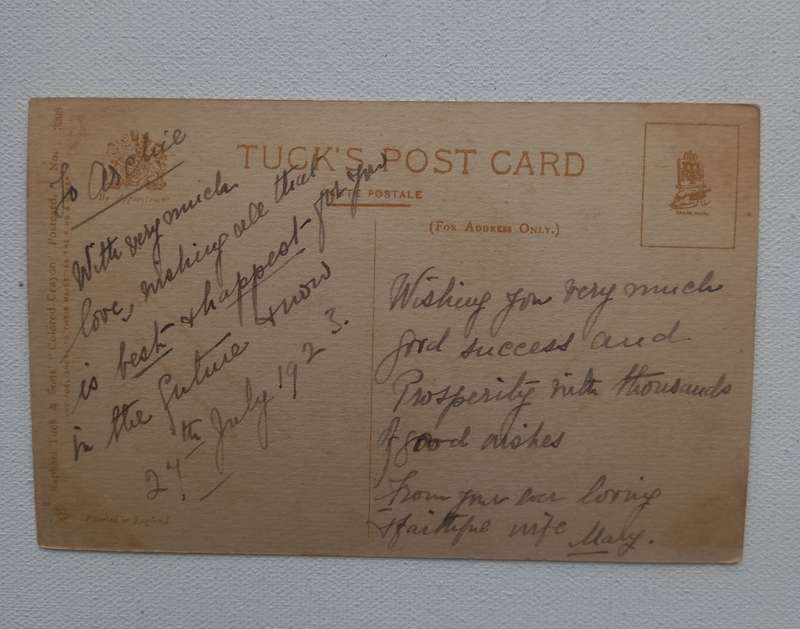 TUCK'S POST CARD
CARTE POSTALE
(FOR ADDRESS ONLY.)
By Appointment
Raphael Tuck & Sons' "Colored Crayon" Postcard, No.
TRADE MARK
Printed in England
To Archie
With very much
love, wishing all that
is best & happest for you
in the future & now
27th July 1923.
Wishing you very much
good success and
Prosperity with thousands
of good wishes
From your ever loving
& faithful wife Mary.